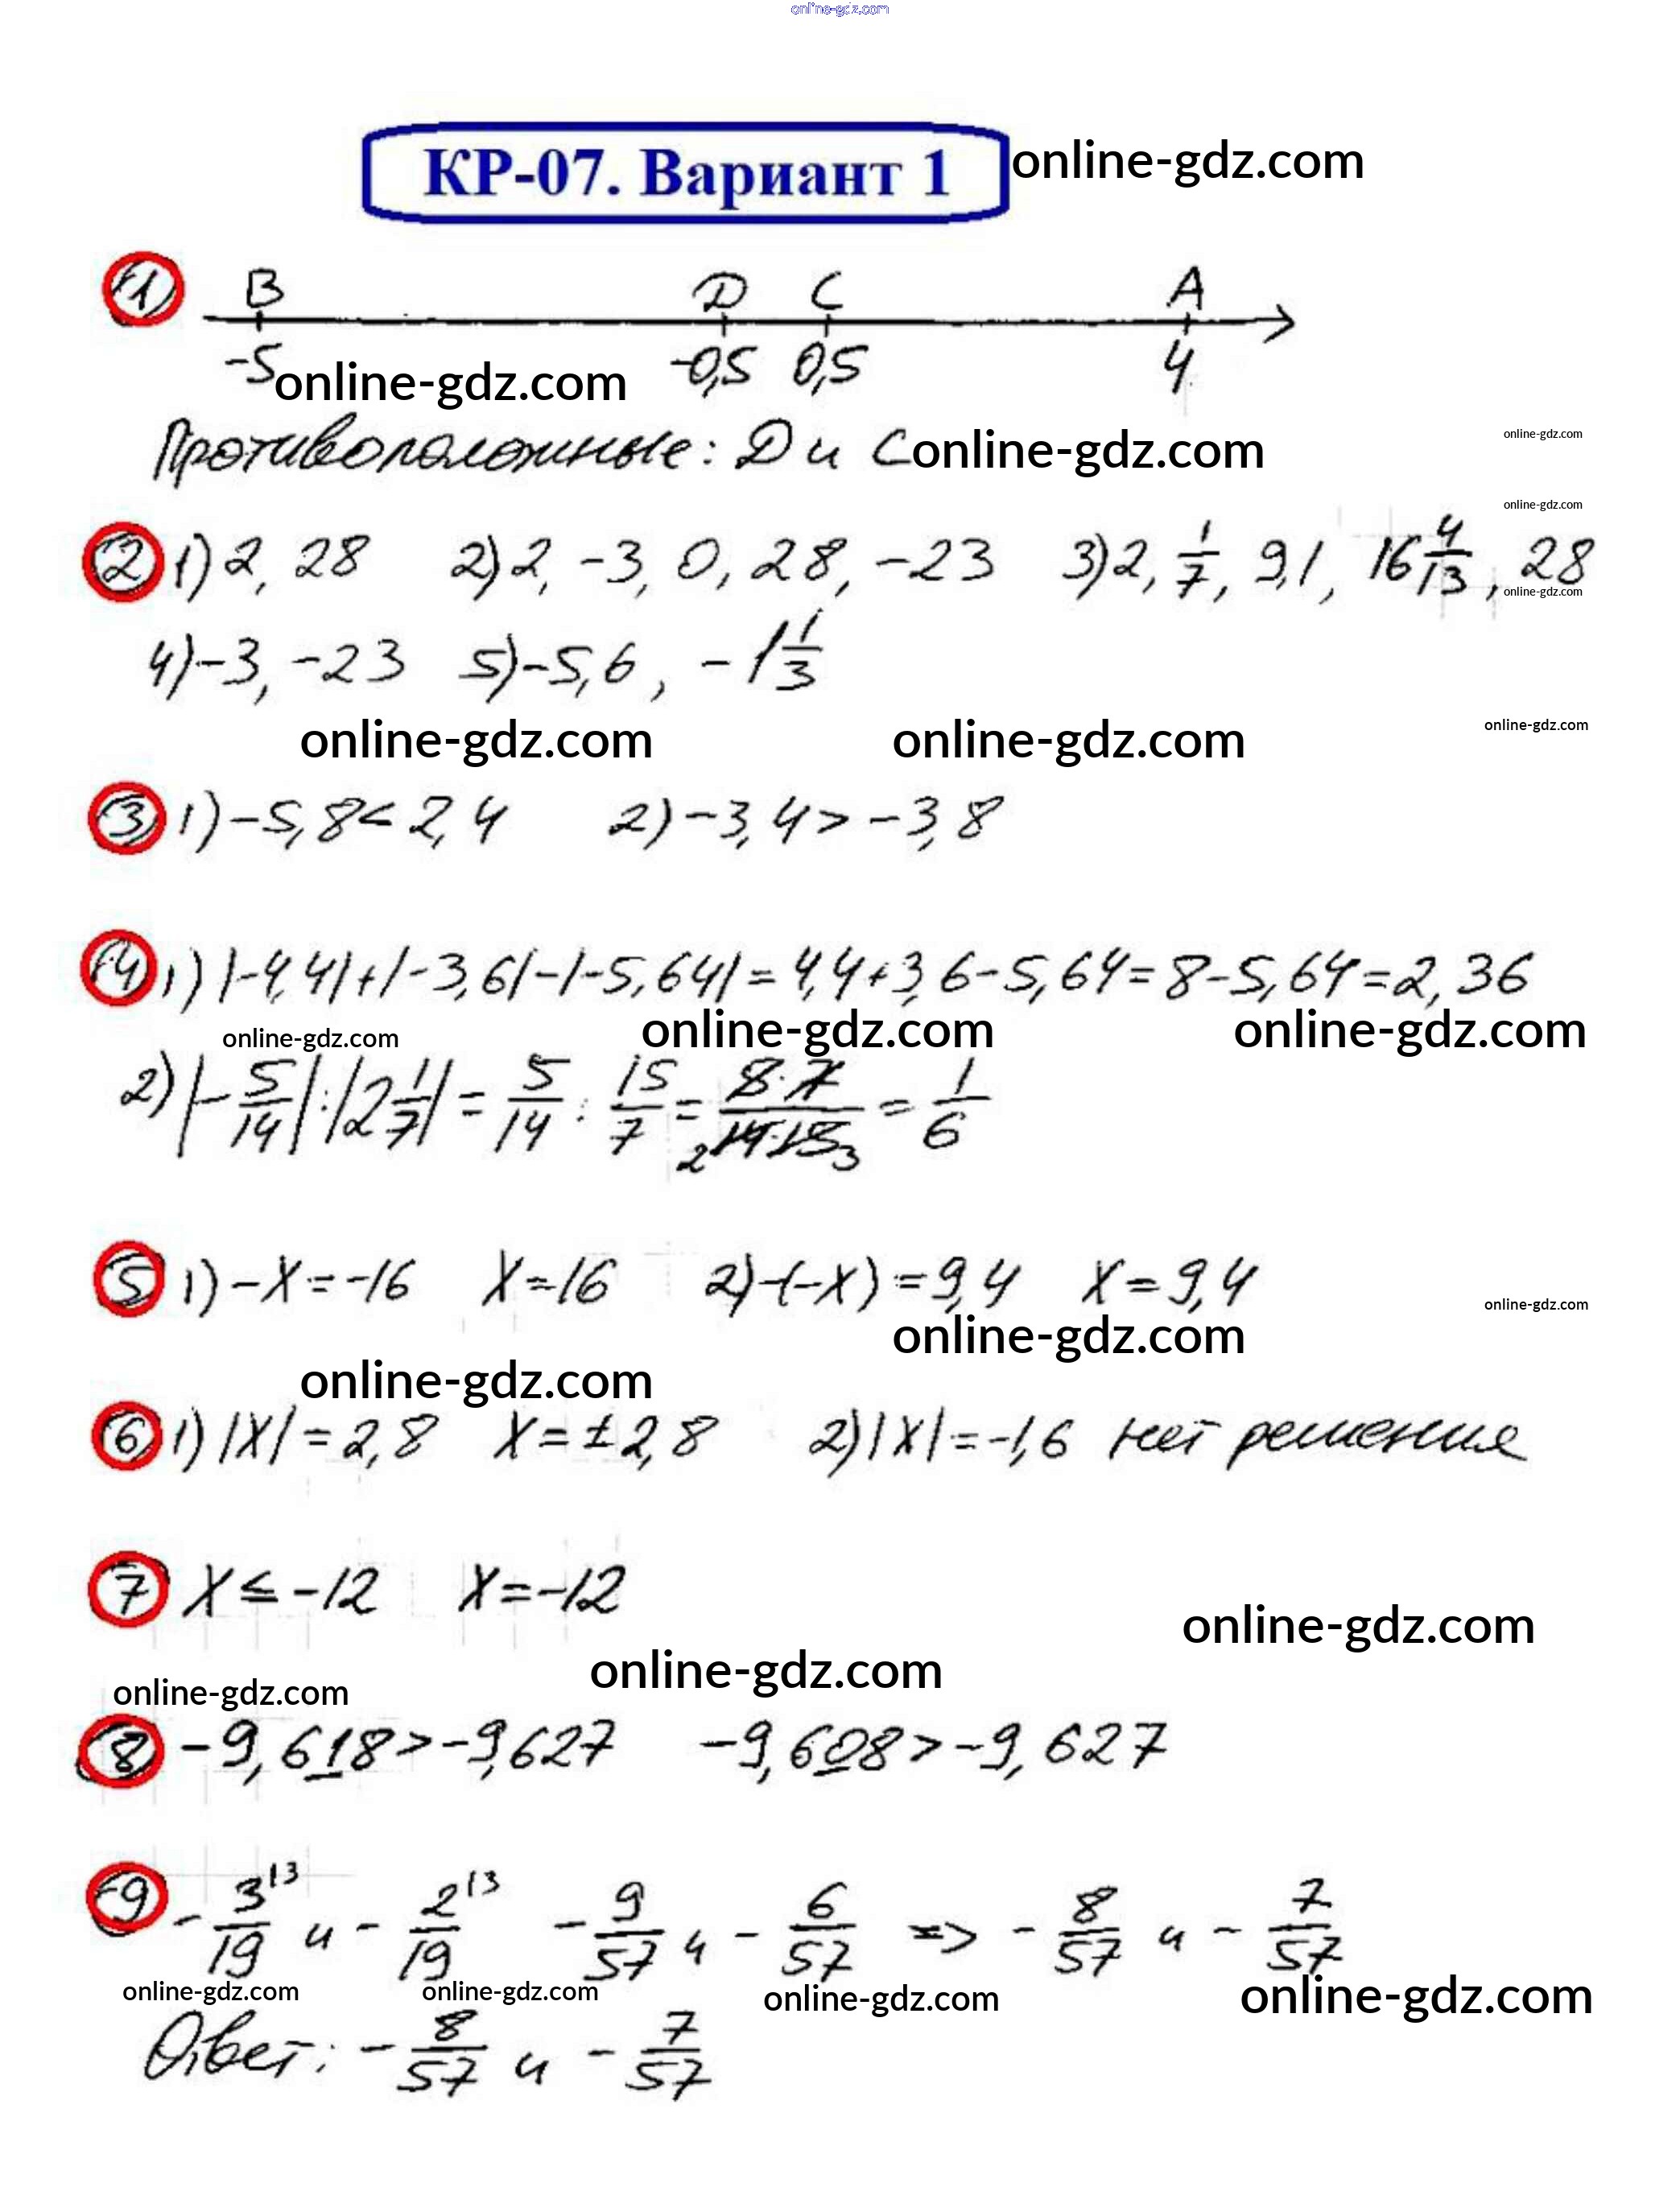 online-gdz.com
КР-07. Вариант 1 online-gdz.com
1) B D C A
-5 -0,5 0,5 4
online-gdz.com
Противоположные: D и C online-gdz.com
online-gdz.com
online-gdz.com
2) 1) 2, 28 2) 2, -3, 0, 28, -23 3) 2, 1/7, 9,1, 16 4/13, 28
online-gdz.com
4) -3, -23 5) -5,6, -1 1/3
online-gdz.com online-gdz.com online-gdz.com
3) 1) -5,8 < 2,4 2) -3,4 > -3,8
4) 1) |-4,4| + |-3,6| - |-5,64| = 4,4 + 3,6 - 5,64 = 8 - 5,64 = 2,36
online-gdz.com online-gdz.com online-gdz.com
2) |-5/14| : |2 1/7| = 5/14 : 15/7 = 8·7/14·15 2 3 = 1/6
5) 1) -X = -16 X = 16 2) -(-X) = 9,4 X = 9,4
online-gdz.com
online-gdz.com
online-gdz.com
6) 1) |X| = 2,8 X = ±2,8 2) |X| = -1,6 нет решения
7) X ≤ -12 X = -12
online-gdz.com
online-gdz.com
online-gdz.com
8) -9,618 > -9,627 -9,608 > -9,627
9) -3/19 ^13 и -2/19 ^13 -9/57 и -6/57 => -8/57 и -7/57
online-gdz.com online-gdz.com online-gdz.com online-gdz.com
Ответ: -8/57 и -7/57